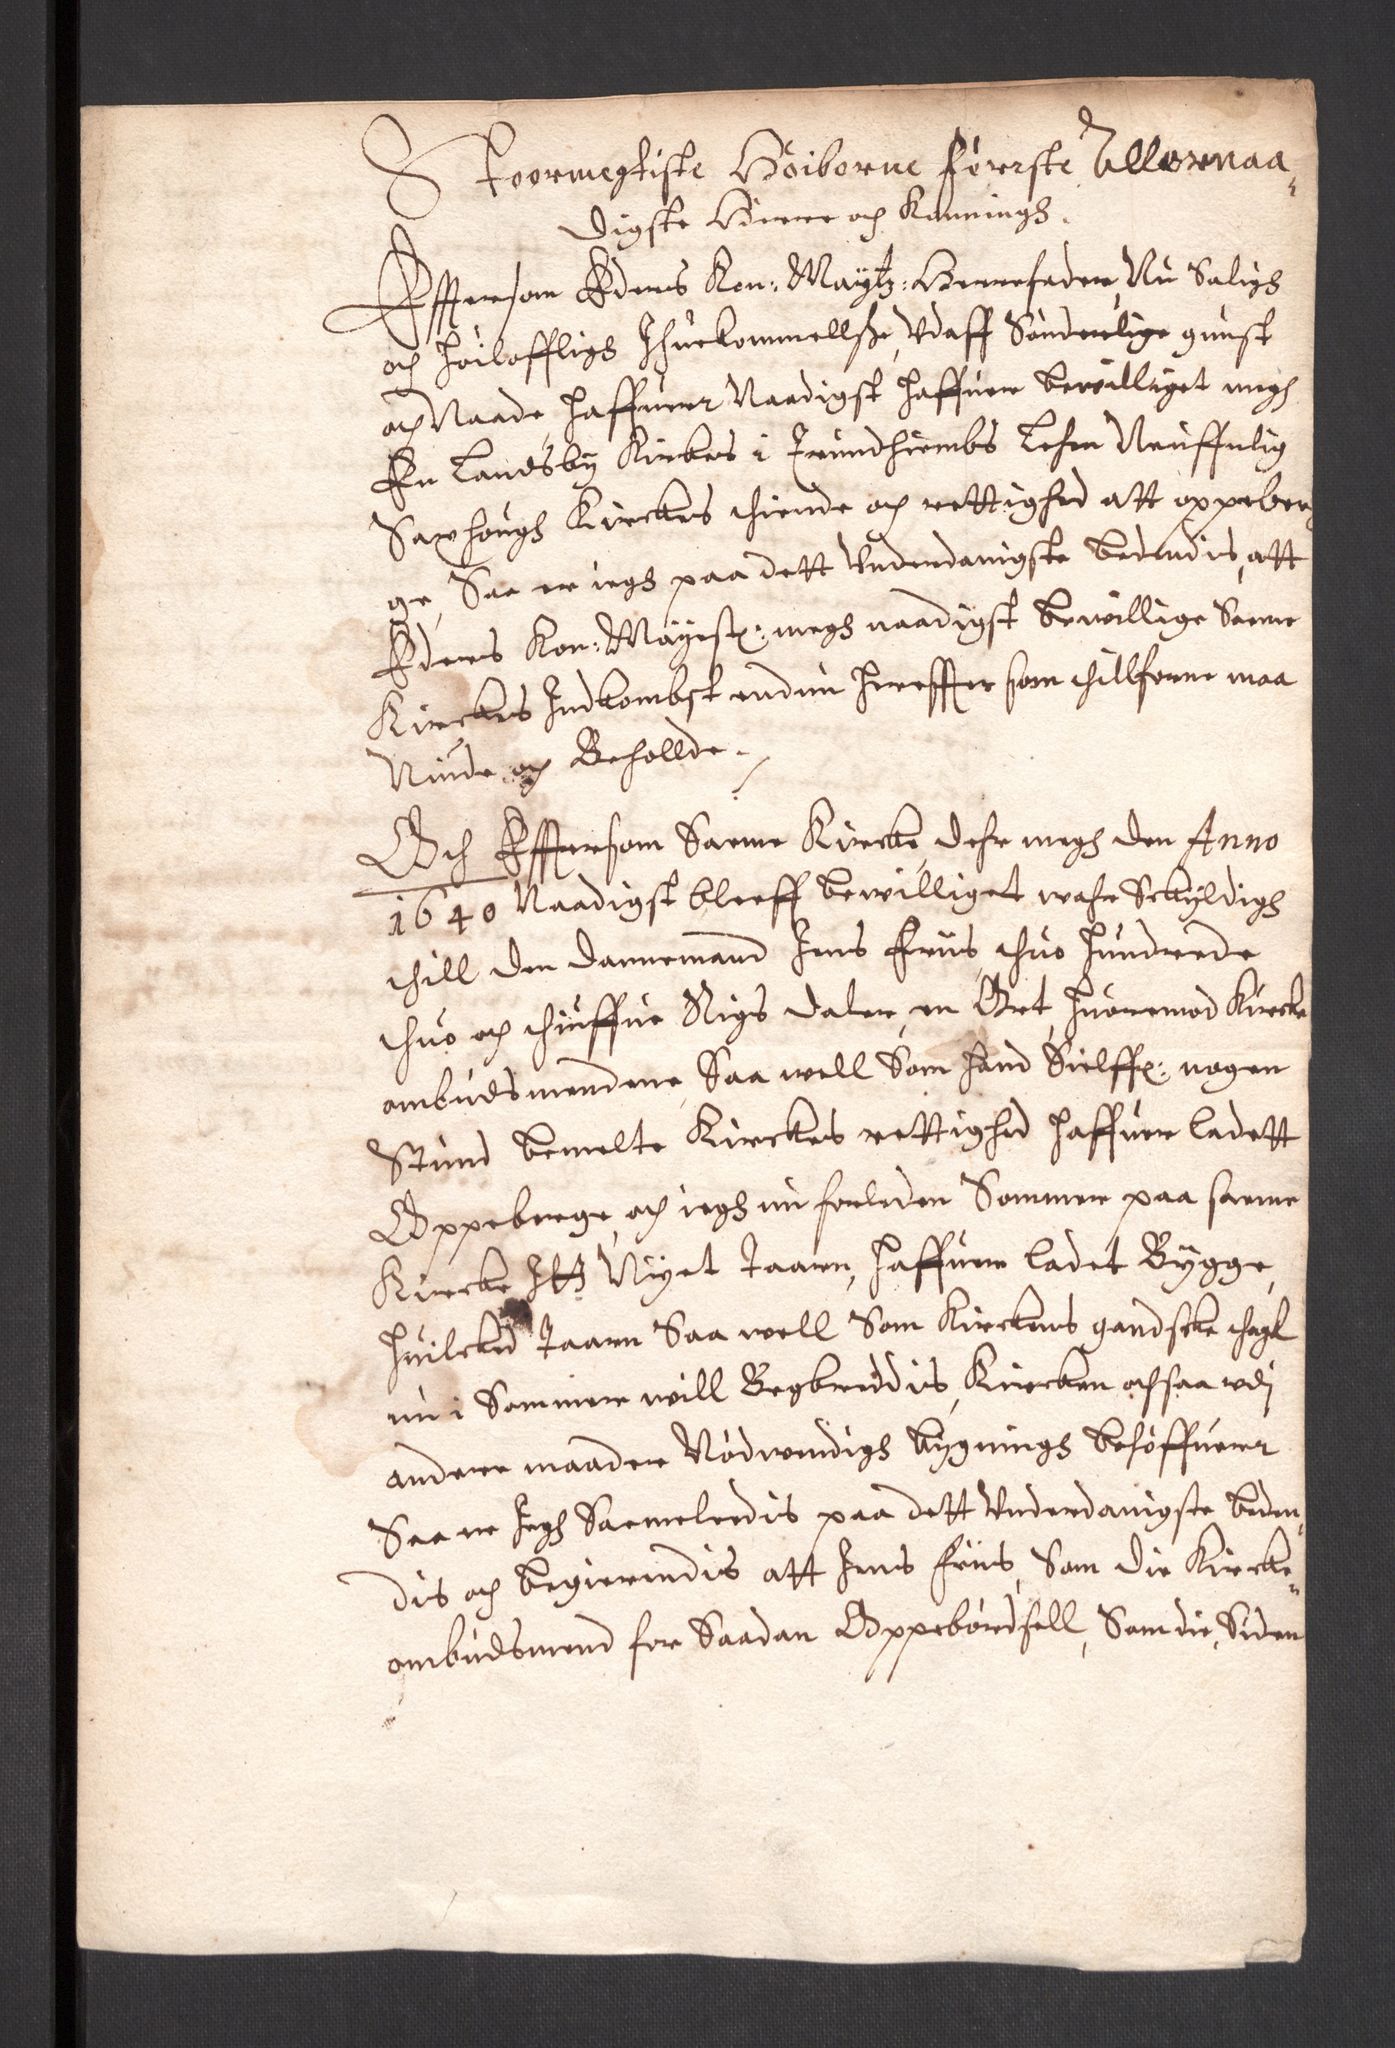 Stoormegtiste Høiborne første Allernaa-
digste Herre och Konningh.
Effttersom Eders Kon: Maytz: Herrefader, Nu Saligh
och høilofflighs Ihuekommellsse, Vdaff Sønderlige gunst
och Naade haffuer Naadigst haffuer bewilliget megh
En Landsby Kirkes i Trundhiembs Lehn Neuffnlig
Saxhough Kirckes thiende och rettighed att oppeber-
ge, Saa er iegh paa dett Vnderdanigste bedendis, att
Eders Kon: Mayest: megh naadigst bewillige Samme
Kirckes Indkombst endnu hereffter som thillforne maa
Niude och Beholde.
Och Effttersom Samme Kircke, dehr megh den Anno
1640 Naadigst bleeff bewilliget wahr Schyldigh
thill den dannemand Jens Friis, thuo hundrede
thuo och thiuffue Rigs daler, en Ort, huoremod Kircke
ombudsmendene, Saa well Som hand Sielff: nogen
Stund bemelte Kirckes rettighed haffuer ladett
Oppeberge, och iegh nu forleden Sommer paa samme
Kircke Itt Nyet Taarn, haffuer ladet Bygge,
huilcked Taarn Saa well Som Kirckens gandske thagh
nu i Sommer will Begbreddis, Kircken ochsaa vdi
andere maader Nødwendigh bygnings behøffuer
Saa er Jegh Sammeledis paa dett Vnderdanigste beden-
dis och begierendis att Jens Friis, Som die Kircke-
ombudsmend for Saadan Oppebørdsell, Som die, Siden